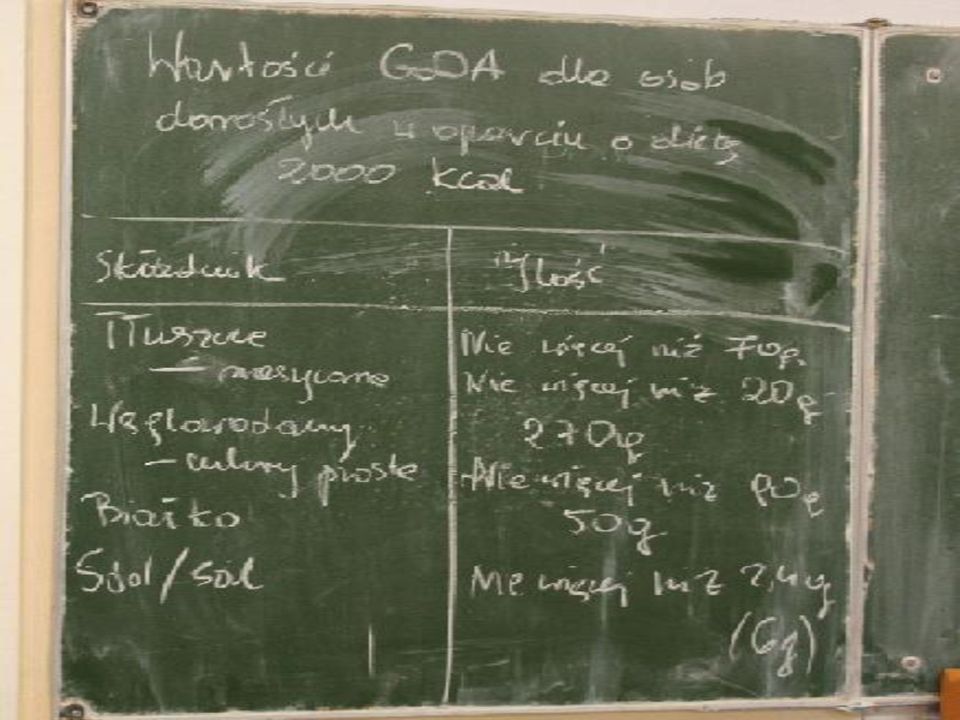 Wartości GDA dla osób
dorosłych w oparciu o dietę
2000 kcal
Składnik Ilość
Tłuszcze Nie więcej niż 70g.
— nasycone Nie więcej niż 20g
Węglowodany 270g
— cukry proste Nie więcej niż 90g
Białko 50g
Sód/sól Nie więcej niż 2,4g
(6g)